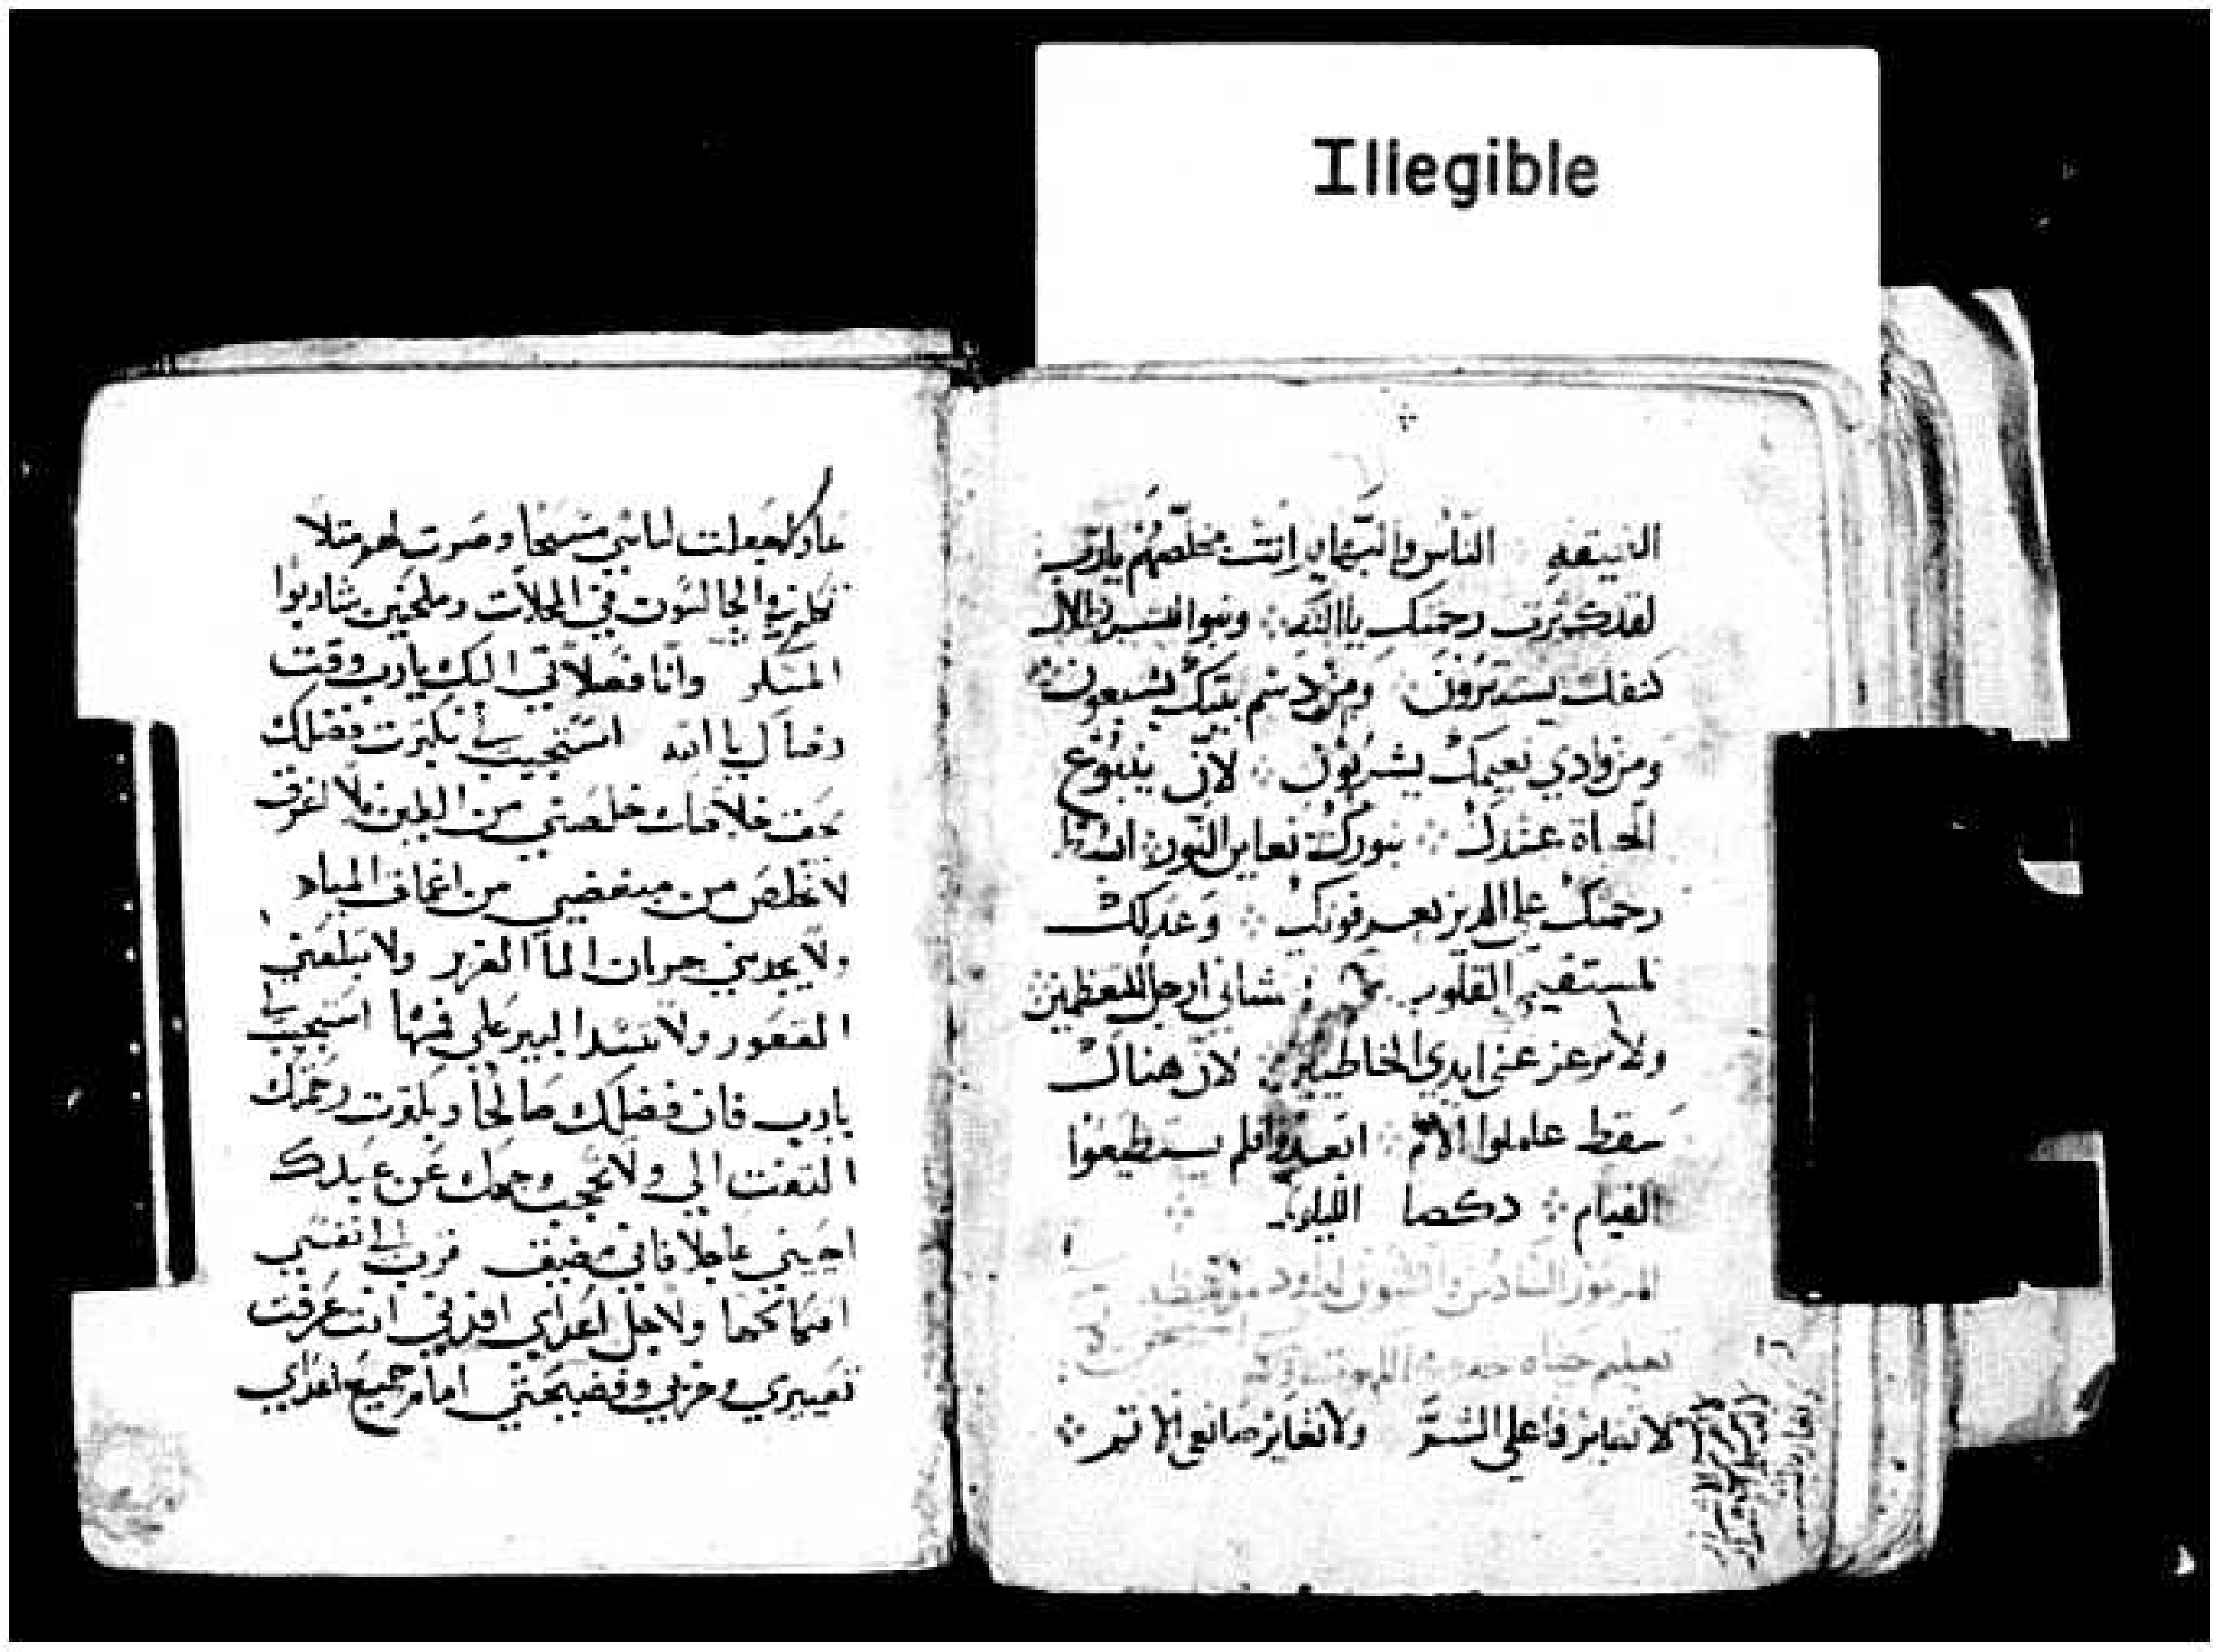 Illegible
العميقه الناس والبهايم انت مخلصهم يارب
لقد كثرت رحمتك يا الله وبنوا البشر بظلال
كنفك يستترون ومن دسم بيتك يشبعون
ومن وادي نعيمك يشربون لان ينبوع
الحياة عندك بنورك نعاين النور ابسط
رحمتك على الذين يعرفونك وعدلك
لمستقيمي القلوب ارجل المتعظمين
ولا تزعزعني ايدي الخاطيين لان هناك
سقط عاملوا الاثم ابعدوا فلم يستطيعوا
القيام دكصا الليلويا
المزمور السادس والثلثون لداود
تعليم حياه
لا تتباين فاعلي الشر ولا تغاير صانعي الاثم
عارا جعلت لباسي مسحا وصرت لهم مثلا
تكلم في الجالسون في المحلات وملحنين شاربوا
المسكر وانا فصلاتي اليك يارب وقت
رضاك يا الله استجيب لي بكثرت فضلك
بحق خلاصك خلصني من الطين فلا اغرق
لاتخلص من مبغضي من اعماق المياه
ولا يجدبني جريان الما الغزير ولا يبلعني
القعور ولا تسد البير علي فمها استجيب لي
يارب فان فضلك صالحا وبكثرت رحمتك
التفت الي ولا تحجب وجهك عن عبدك
اجيبني عاجلا فاني مضيق قرب الي نفسي
افتكها ولاجل اعداي افديني انت عرفت
تعييري وخزيي وفضيحتي امام جميع اعداي